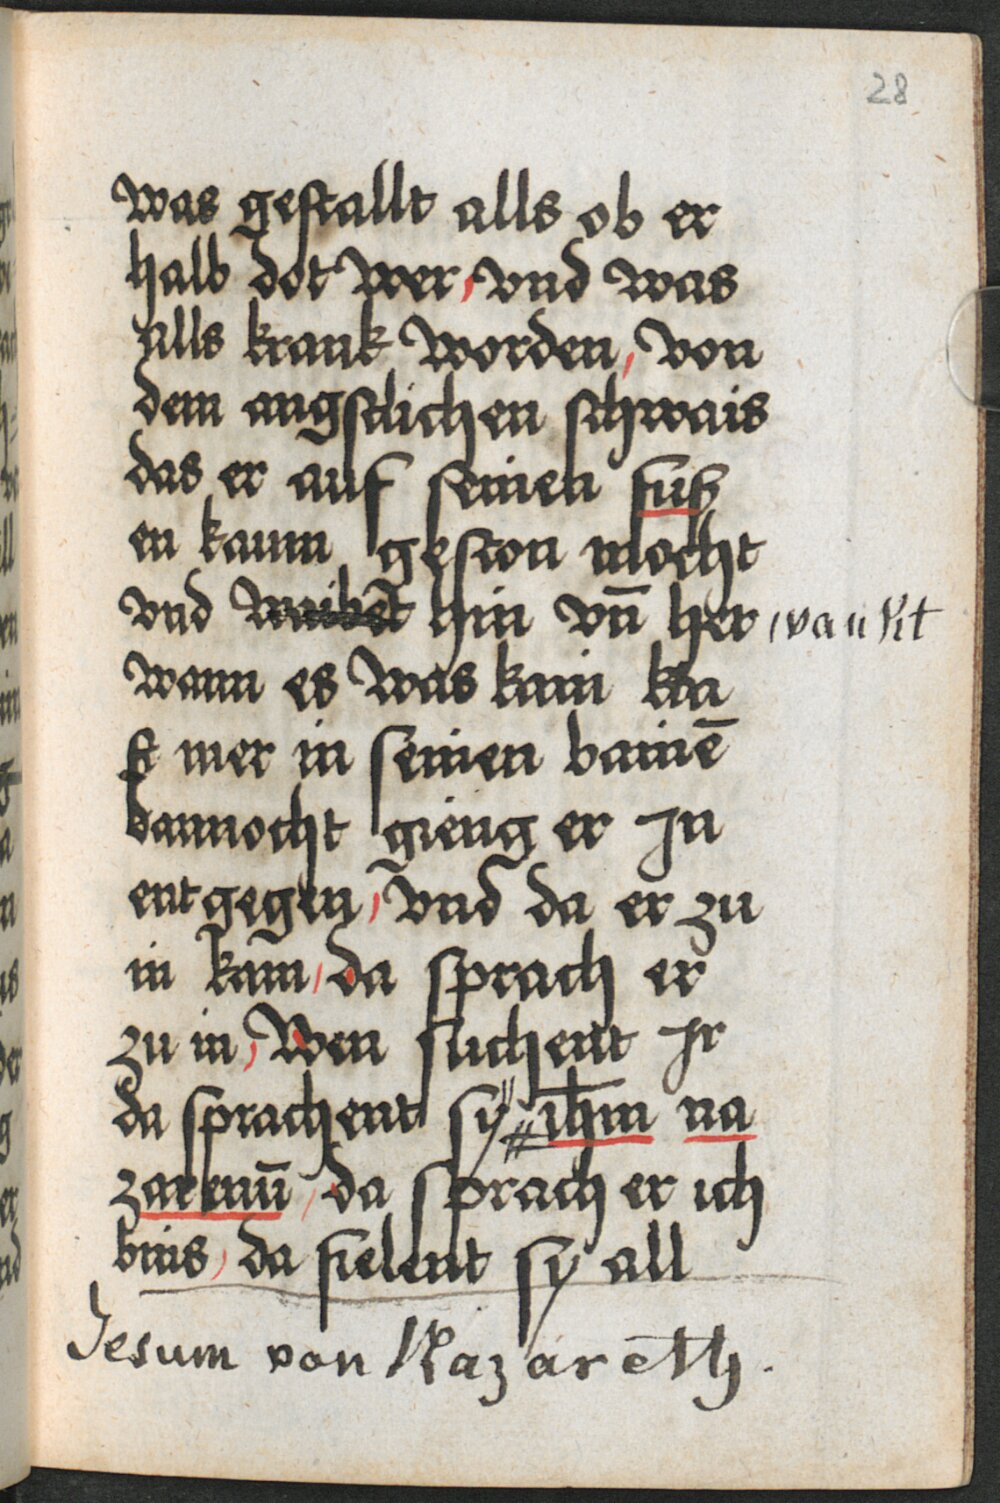 28
was gestallt alls ob er
halb dot wer, vnd was
alls krank worden, von
dem angstlichen schwais
das er auf seinen füß
en kaum geston mocht
vnd hin vn̄ her, vankt
wann es was kain kra
ft mer in seinen bainē
dannocht gieng er In
entgegen, vnd da er zu
in kam, da sprach er
zu in, Wen suchent Ir
da sprachent sy ih̄m na
zarenū, da sprach er ich
bins, da fielent sy all
Jesum von Nazareth.